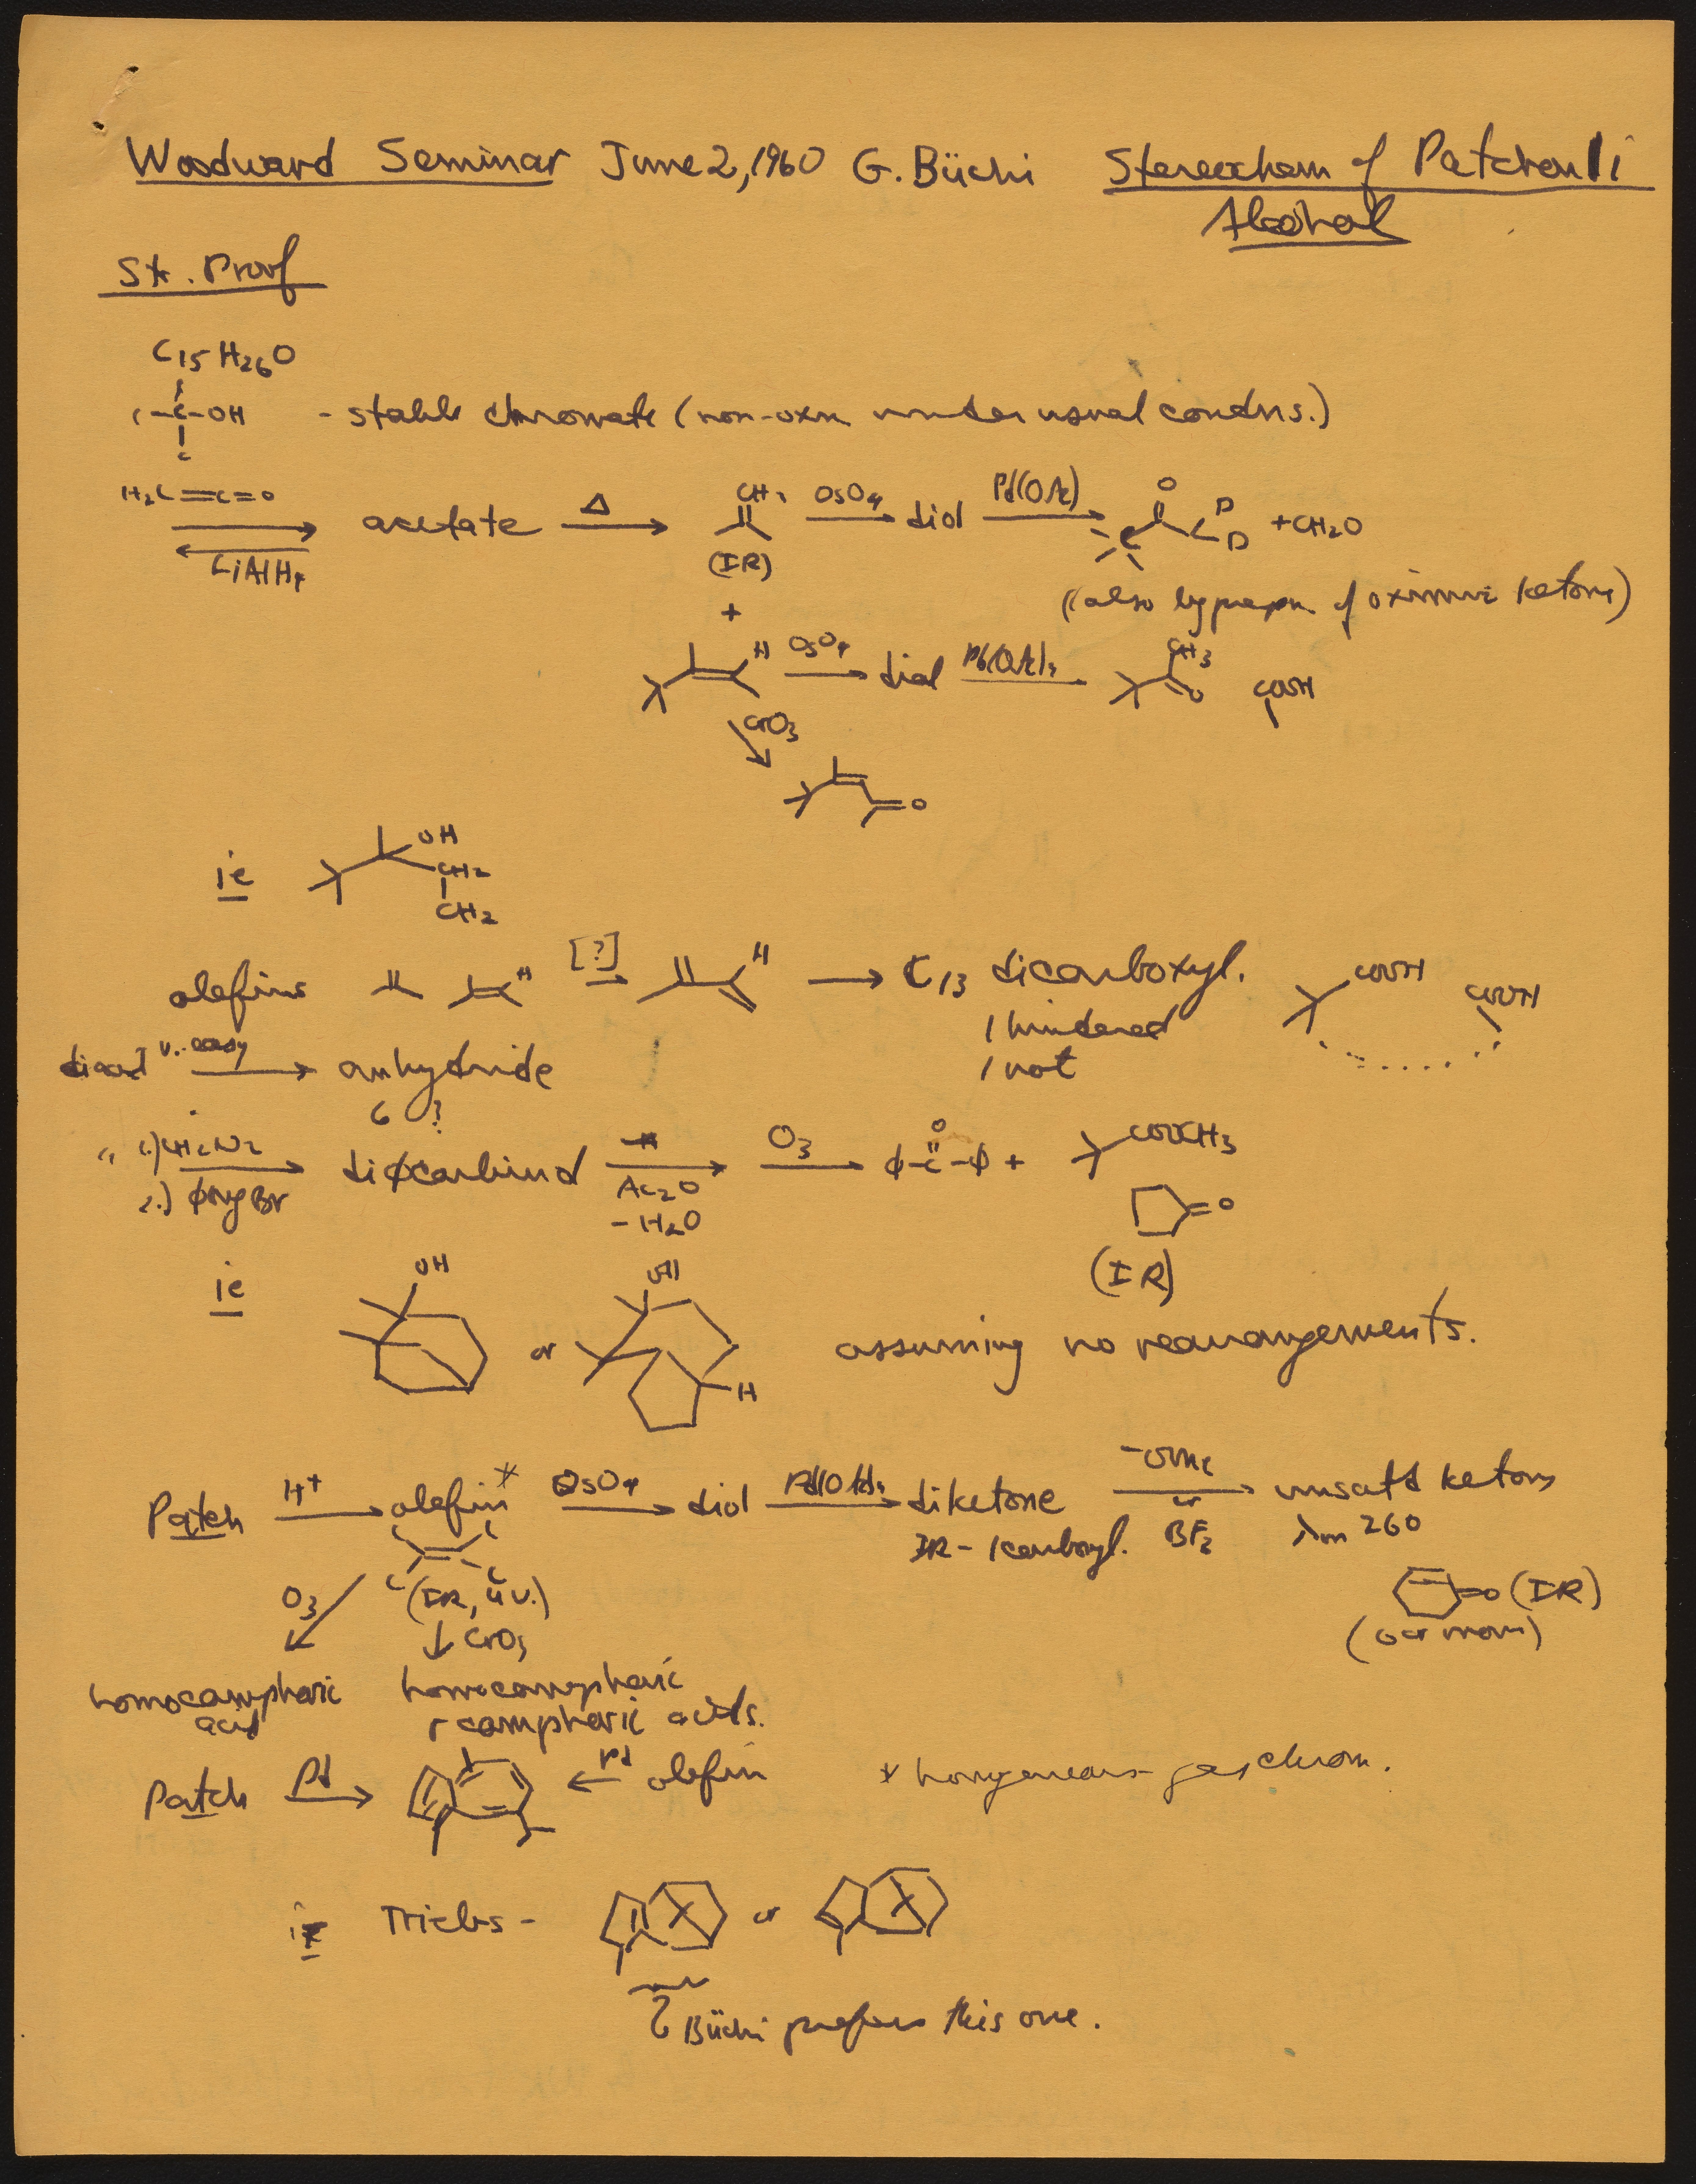 Woodward Seminar June 2, 1960 G. Büchi Stereochem of Patchouli
Alcohol
St. Proof
C15H26O
C
C-C-OH - stable chromate (non-oxn under usual condns.)
C
H2C=C=O
LiAlH4
acetate Δ CH2 OsO4 diol Pb(OAc) O D D + CH2O
C
(IR)
(also by prepn. of oximino ketone)
+
H OsO4 diol Pb(OAc)4 CH3 O COOH
CrO3
O
ie OH CH2
CH2
olefins H [?] H C13 dicarboxyl. COOH COOH
1 hindered
1 not
diacid v. easy anhydride
6 ?
" 1.) CH2N2 diφcarbinol Ac2O O3 φ-C-φ + COOCH3
O
2.) φMgBr - H2O
O
(IR)
ie OH or OH H assuming no rearrangements.
Patch H+ olefin* OsO4 diol Pb(OAc)4 diketone -OMe or BF3 unsatd ketone
IR - 1 carbonyl. λm 260
C C
C C
(IR, UV.)
=O (IR)
(or more)
O3 CrO3
homocamphoric acid homocamphoric
+ camphoric acids.
Patch Pd Pd olefin * homogeneous - gas chrom.
ie Triebs - or
Büchi prefers this one.